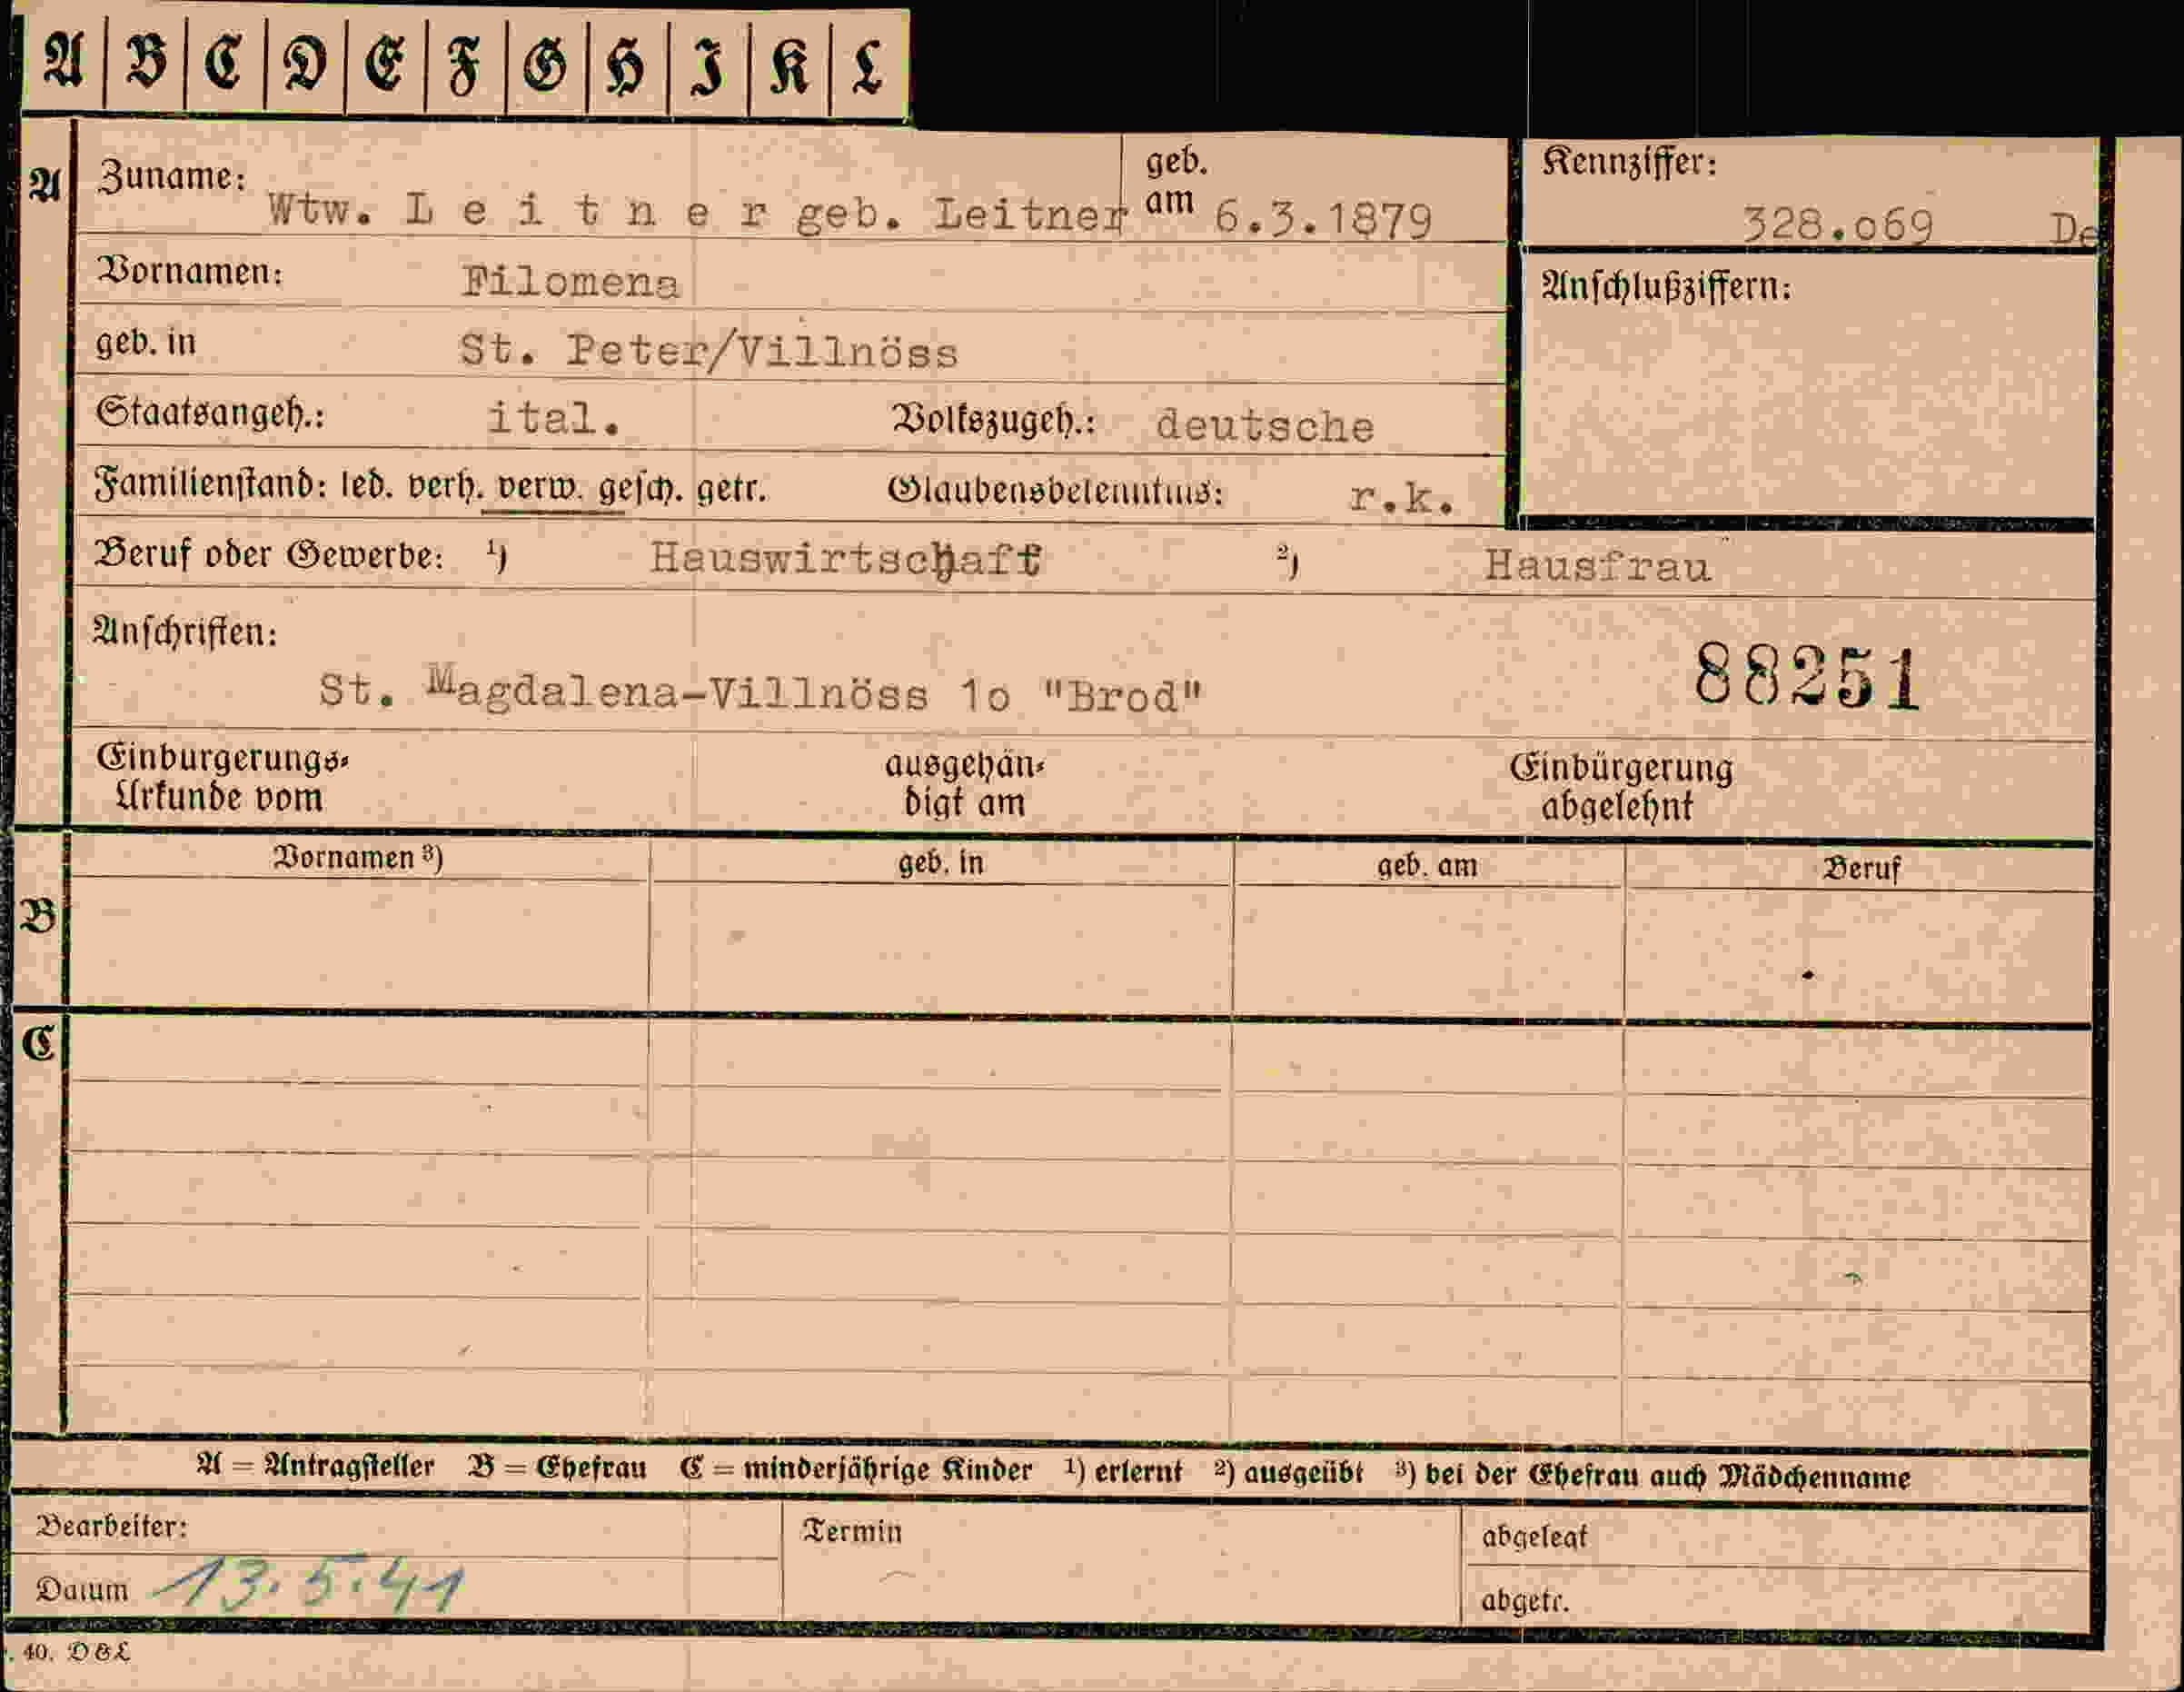 A B C D E F G H I K L
A Zuname: Wtw. L e i t n e r geb. Leitner geb. am 6.3.1879 Kennziffer: 328.o69 De
Vornamen: Filomena Anschlußziffern:
geb. in St. Peter/Villnöss
Staatsangeh.: ital. Volkszugeh.: deutsche
Familienstand: led. verh. verw. gesch. getr. Glaubensbekenntnis: r.k.
Beruf oder Gewerbe: ¹) Hauswirtschaft ²) Hausfrau
Anschriften:
St. Magdalena-Villnöss 1o "Brod" 88251
Einbürgerungs- ausgehän- Einbürgerung
Urkunde vom digt am abgelehnt
Vornamen ³) geb. in geb. am Beruf
B
C
A = Antragsteller B = Ehefrau C = minderjährige Kinder ¹) erlernt ²) ausgeübt ³) bei der Ehefrau auch Mädchenname
Bearbeiter: Termin abgelegt
Datum 13.5.41 abgetr.
. 40. D&L